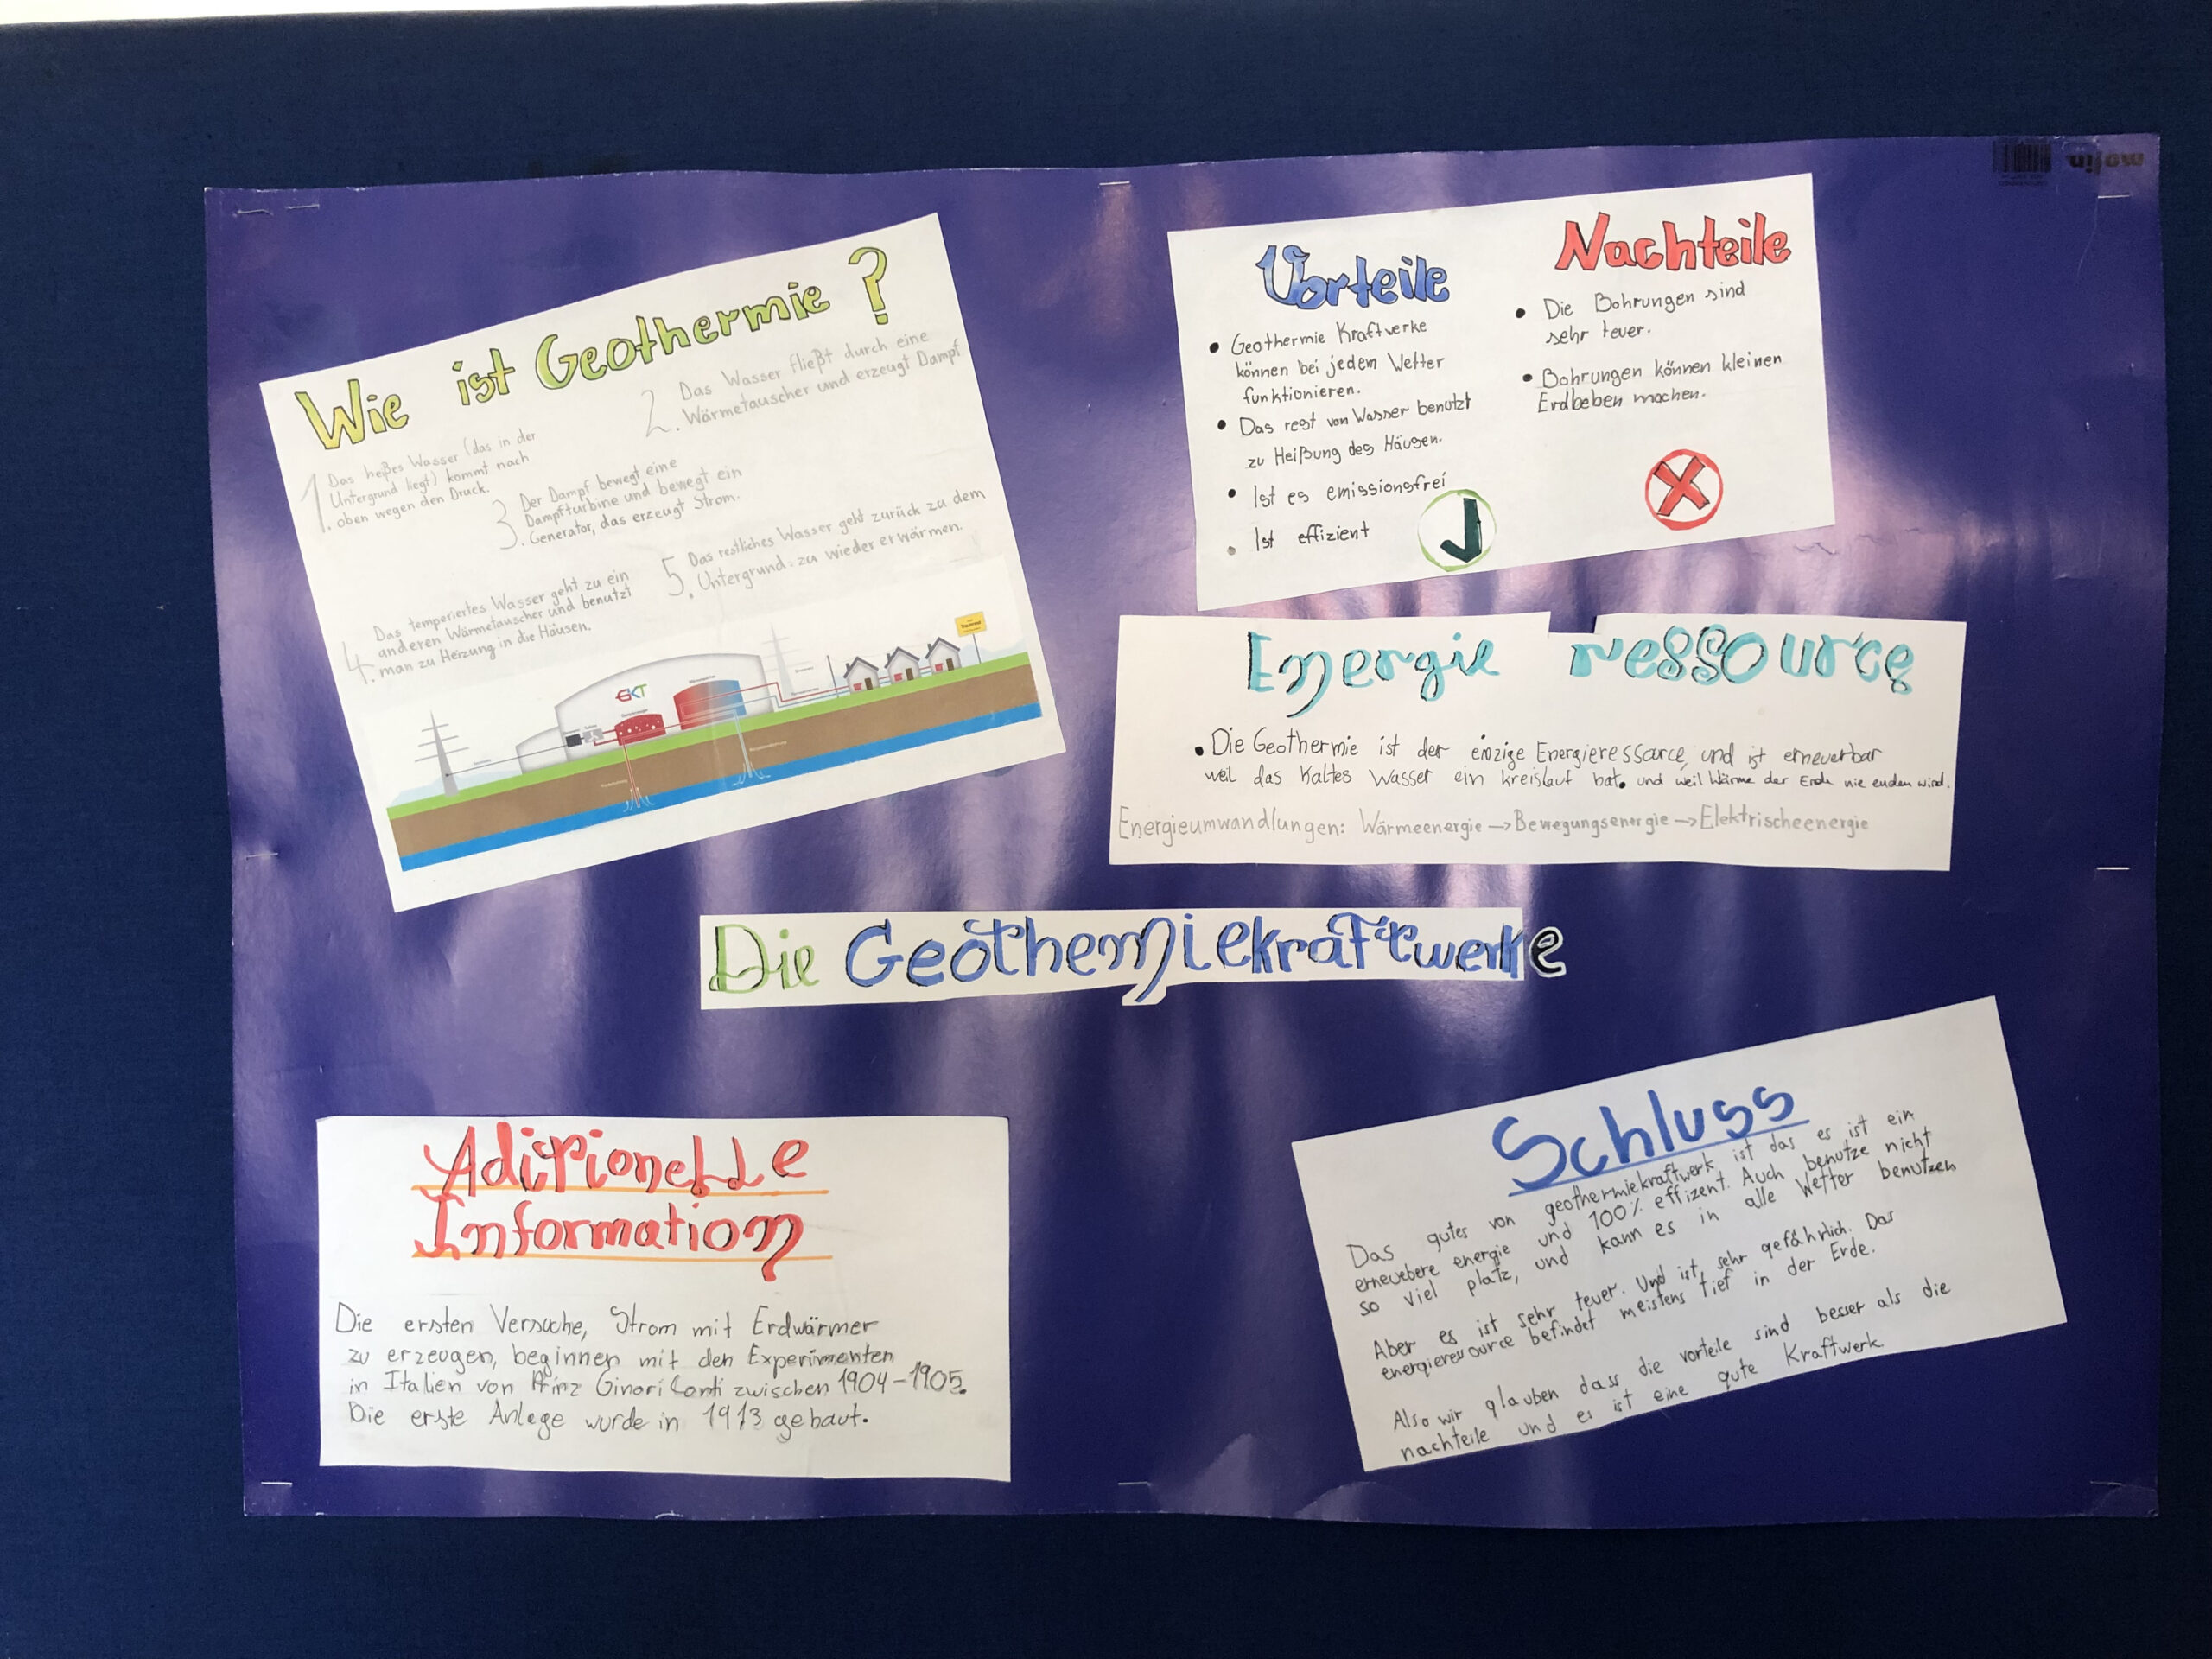 Wie ist Geothermie?
1. Das heßes Wasser (das in der
Untergrund liegt) kommt nach
oben wegen den Druck.
2. Das Wasser fließt durch eine
Wärmetauscher und erzeugt Dampf
3. Der Dampf bewegt eine
Dampfturbine und bewegt ein
Generator, das erzeugt Strom.
4. Das temperiertes Wasser geht zu ein
anderen Wärmetauscher und benutzt
man zu Heizung in die Häusen.
5. Das restliches Wasser geht zurück zu dem
Untergrund. zu wieder erwärmen.
GKT
Vorteile
• Geothermie Kraftwerke
können bei jedem Wetter
funktionieren.
• Das rest von Wasser benutzt
zu Heißung des Häusen.
• Ist es emissionsfrei
• Ist effizient
Nachteile
• Die Bohrungen sind
sehr teuer.
• Bohrungen können kleinen
Erdbeben machen.
Energie ressource
• Die Geothermie ist der einzige Energieressarce, und ist erneuerbar
weil das Kaltes Wasser ein kreislauf hat. und weil Wärme der Erde nie enden wird.
Energieumwandlungen: Wärmeenergie → Bewegungsenergie → Elektrischeenergie
Die Geothemiekraftwerke
Aditionelle
Information
Die ersten Versuche, Strom mit Erdwärmer
zu erzeugen, beginnen mit den Experimenten
in Italien von Prinz Ginori Conti zwischen 1904-1905.
Die erste Anlage wurde in 1913 gebaut.
Schluss
Das gutes von geothermiekraftwerk ist das es ist ein
erneuebere energie und 100% effizent. Auch benutze nicht
so viel platz, und kann es in alle Wetter benutzen
Aber es ist sehr teuer. Und ist sehr gefährlich. Das
energieressource befindet meistens tief in der Erde.
Also wir glauben dass die vorteile sind besser als die
nachteile und es ist eine gute Kraftwerk.